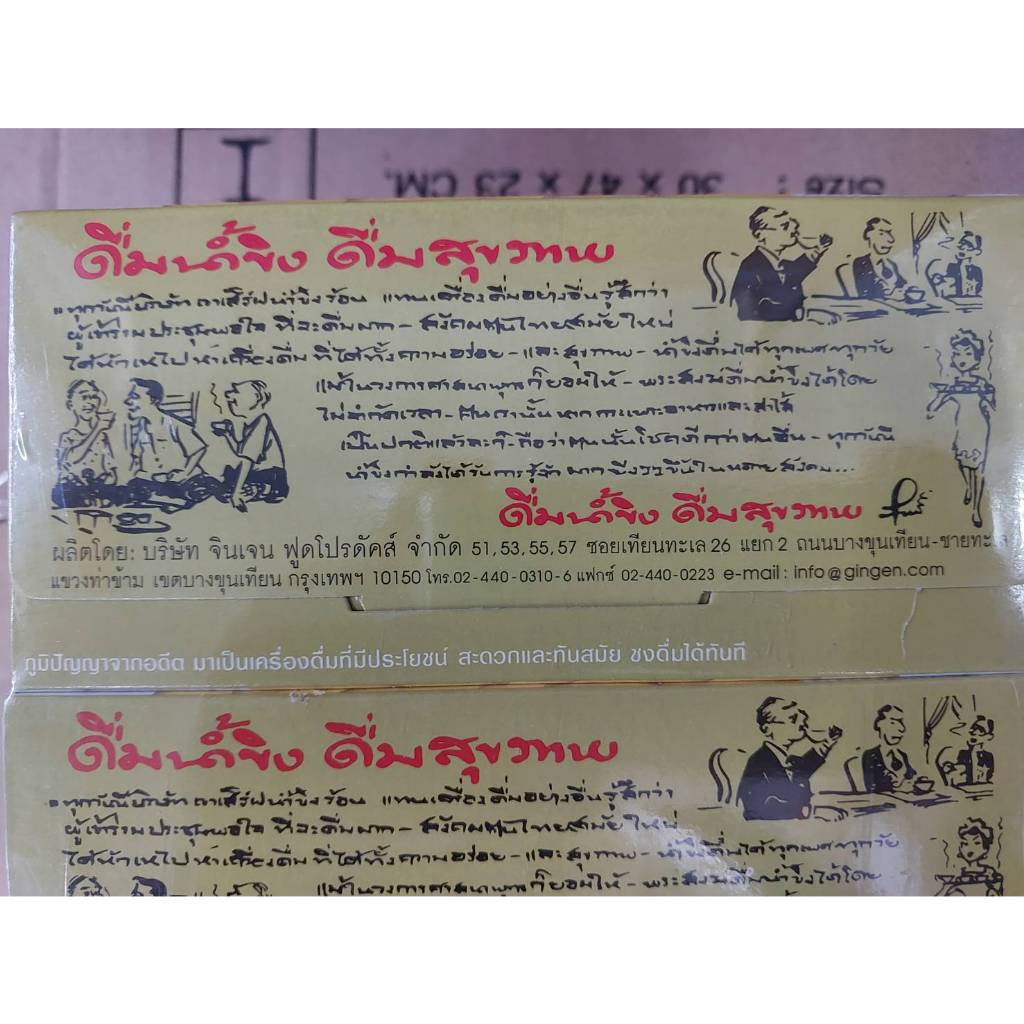 Size : 30 x 47 x 23 CM.
ดื่มน้ำขิง ดื่มสุขภาพ
"ทุกวันนี้บริษัท ถ้าเสิร์ฟน้ำขิงร้อน แทนเครื่องดื่มอย่างอื่นรู้สึกว่า
ผู้เข้าร่วมประชุมพอใจ ที่จะดื่มมาก - สังคมคนไทยสมัยใหม่
ได้หันเหไปหาเครื่องดื่มที่ได้ทั้งความอร่อย - และสุขภาพ - น้ำขิงดื่มได้ทุกเพศทุกวัย
แม้ในวงการศาสนาพุทธก็ยอมให้ - พระสงฆ์ดื่มน้ำขิงได้โดย
ไม่จำกัดเวลา - คนเรานั้นหากกระเพาะอาหารและลำไส้
เป็นปกติแล้วละก็ - ถือว่าคนนั้นโชคดีกว่าคนอื่น - ทุกวันนี้
น้ำขิงกำลังได้รับการรู้จักมากยิ่งๆขึ้นในหลายสังคม...
ดื่มน้ำขิง ดื่มสุขภาพ
ผลิตโดย: บริษัท จินเจน ฟูดโปรดัคส์ จำกัด 51,53,55,57 ซอยเทียนทะเล 26 แยก 2 ถนนบางขุนเทียน-ชายทะเล
แขวงท่าข้าม เขตบางขุนเทียน กรุงเทพฯ 10150 โทร.02-440-0310-6 แฟกซ์ 02-440-0223 e-mail : info@gingen.com
ภูมิปัญญาจากอดีต มาเป็นเครื่องดื่มที่มีประโยชน์ สะดวกและทันสมัย ชงดื่มได้ทันที
ดื่มน้ำขิง ดื่มสุขภาพ
"ทุกวันนี้บริษัท ถ้าเสิร์ฟน้ำขิงร้อน แทนเครื่องดื่มอย่างอื่นรู้สึกว่า
ผู้เข้าร่วมประชุมพอใจ ที่จะดื่มมาก - สังคมคนไทยสมัยใหม่
ได้หันเหไปหาเครื่องดื่มที่ได้ทั้งความอร่อย - และสุขภาพ - น้ำขิงดื่มได้ทุกเพศทุกวัย
แม้ในวงการศาสนาพุทธก็ยอมให้ - พระสงฆ์ดื่มน้ำขิงได้โดย